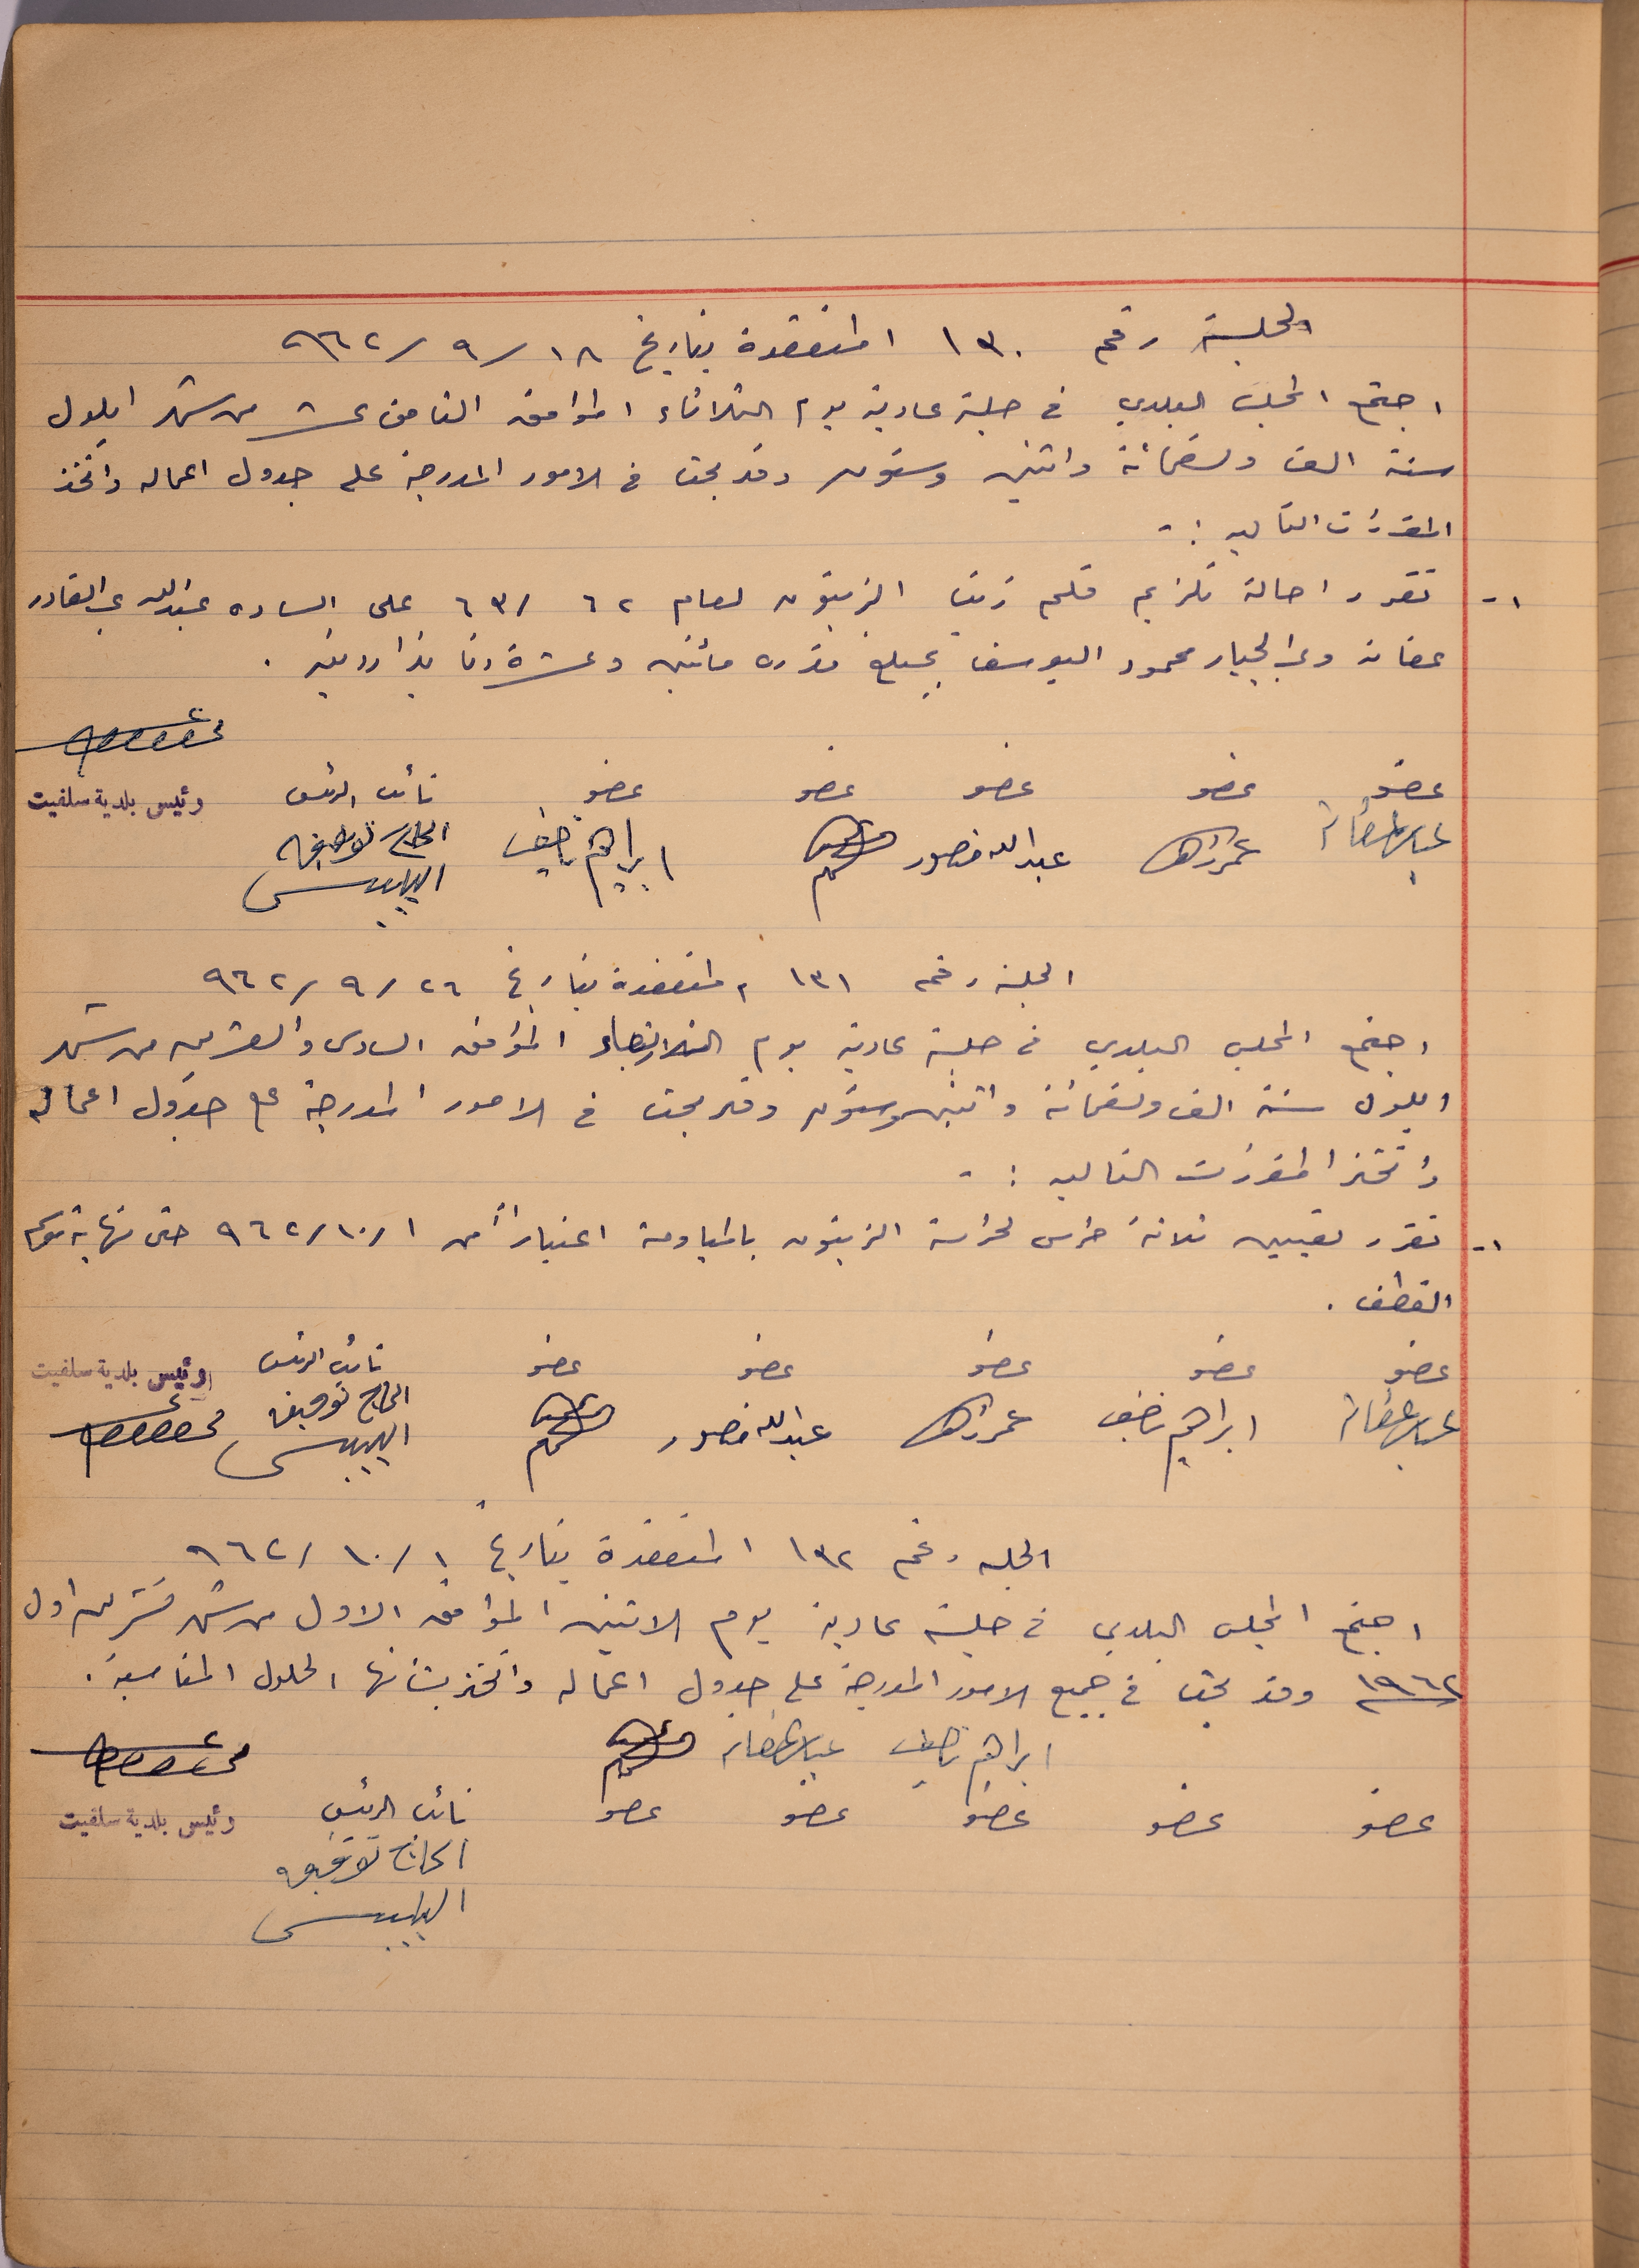 الجلسة رقم ١٣٠ المنعقدة بتاريخ ١٨/٩/٩٦٢
اجتمع المجلس البلدي في جلسة عادية يوم الثلاثاء الموافق الثامن عشر من شهر ايلول
سنة الف وتسعمائة واثنين وستون وقد بحث في الامور المدرجة على جدول اعماله واتخذ
المقررات التاليه :-
١- تقرر احالة تلزيم قلم زيت الزيتون لعام ٦٢/٦٣ على الساده عبدالله عبد القادر
عفانه وعبد الجبار محمود اليوسف بمبلغ قدره مائتين وعشرة دنانير اردنيه .
عضو عضو عضو عضو عضو نائب الرئيس رئيس بلدية سلفيت
عبدالله منصور ابراهيم الحاج توفيق
البلبيسي
الجلسة رقم ١٣١ المنعقدة بتاريخ ٢٦/٩/٩٦٢
اجتمع المجلس البلدي في جلسة عادية يوم الموافق السادس والعشرين من شهر
ايلول سنة الف وتسعمائة واثنين وستون وقد بحث في الامور المدرجة على جدول اعماله
واتخذ المقررات التاليه :-
١- تقرر تعيين ثلاثة حراس لحراسة الزيتون بالمياومة اعتباراً من ١/١٠/٩٦٢ حتى نهاية موسم
القطف .
عضو عضو عضو عضو عضو نائب الرئيس رئيس بلدية سلفيت
ابراهيم عبدالله منصور الحاج توفيق
البلبيسي
الجلسه رقم ١٣٢ المنعقدة بتاريخ ١/١٠/٩٦٢
اجتمع المجلس البلدي في جلسة عادية يوم الاثنين الموافق الاول من شهر تشرين اول
١٩٦٢ وقد بحث في جميع الامور المدرجة على جدول اعماله واتخذ بشأنها الحلول المناسبة .
ابراهيم
عضو عضو عضو عضو عضو نائب الرئيس رئيس بلدية سلفيت
الحاج توفيق
البلبيسي